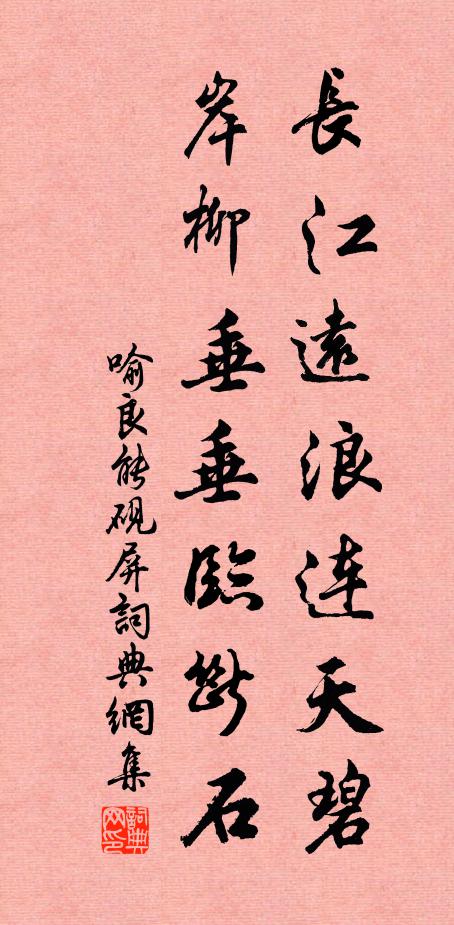 長江遠浪連天碧
岸柳垂垂臨斷石
喻良能硯屏詞典網集
詞典网印